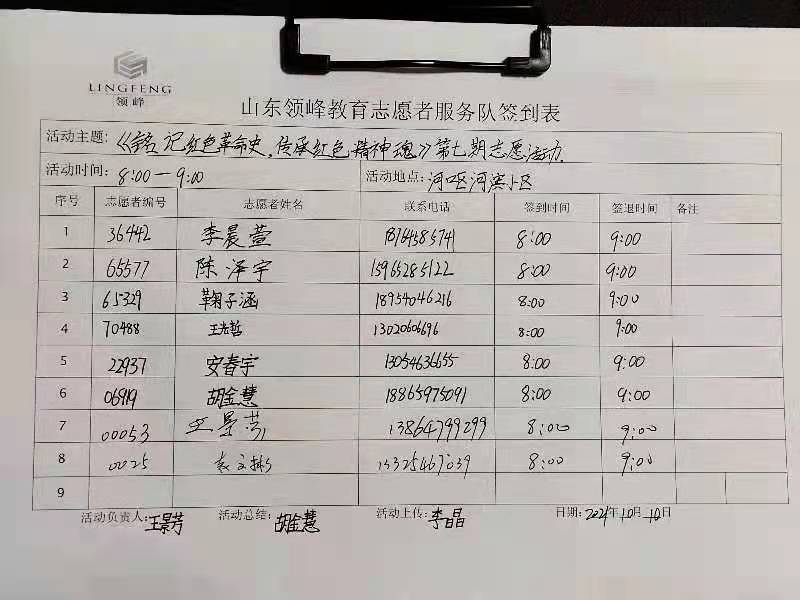 LINGFENG
领峰
山东领峰教育志愿者服务队签到表
活动主题:《铭记红色革命史,传承红色精神魂》第七期志愿活动.
活动时间: 8:00—9:00 活动地点: 河口区河滨小区
序号 志愿者编号 志愿者姓名 联系电话 签到时间 签退时间 备注
1 36442 李晨萱 18764585741 8:00 9:00
2 65577 陈泽宇 15965285122 8:00 9:00
3 65329 鞠子涵 18954046216 8:00 9:00
4 70488 13020606696 8:00 9:00
5 22937 安春宇 13054636655 8:00 9:00
6 06919 胡金慧 18865975091 8:00 9:00
7 00053 王景芳 13864799299 8:00 9:00
8 0025 袁文彬 15325467039 8:00 9:00
9
活动负责人: 王景芳 活动总结: 胡金慧 活动上传: 李晶 日期: 2021年10月10日